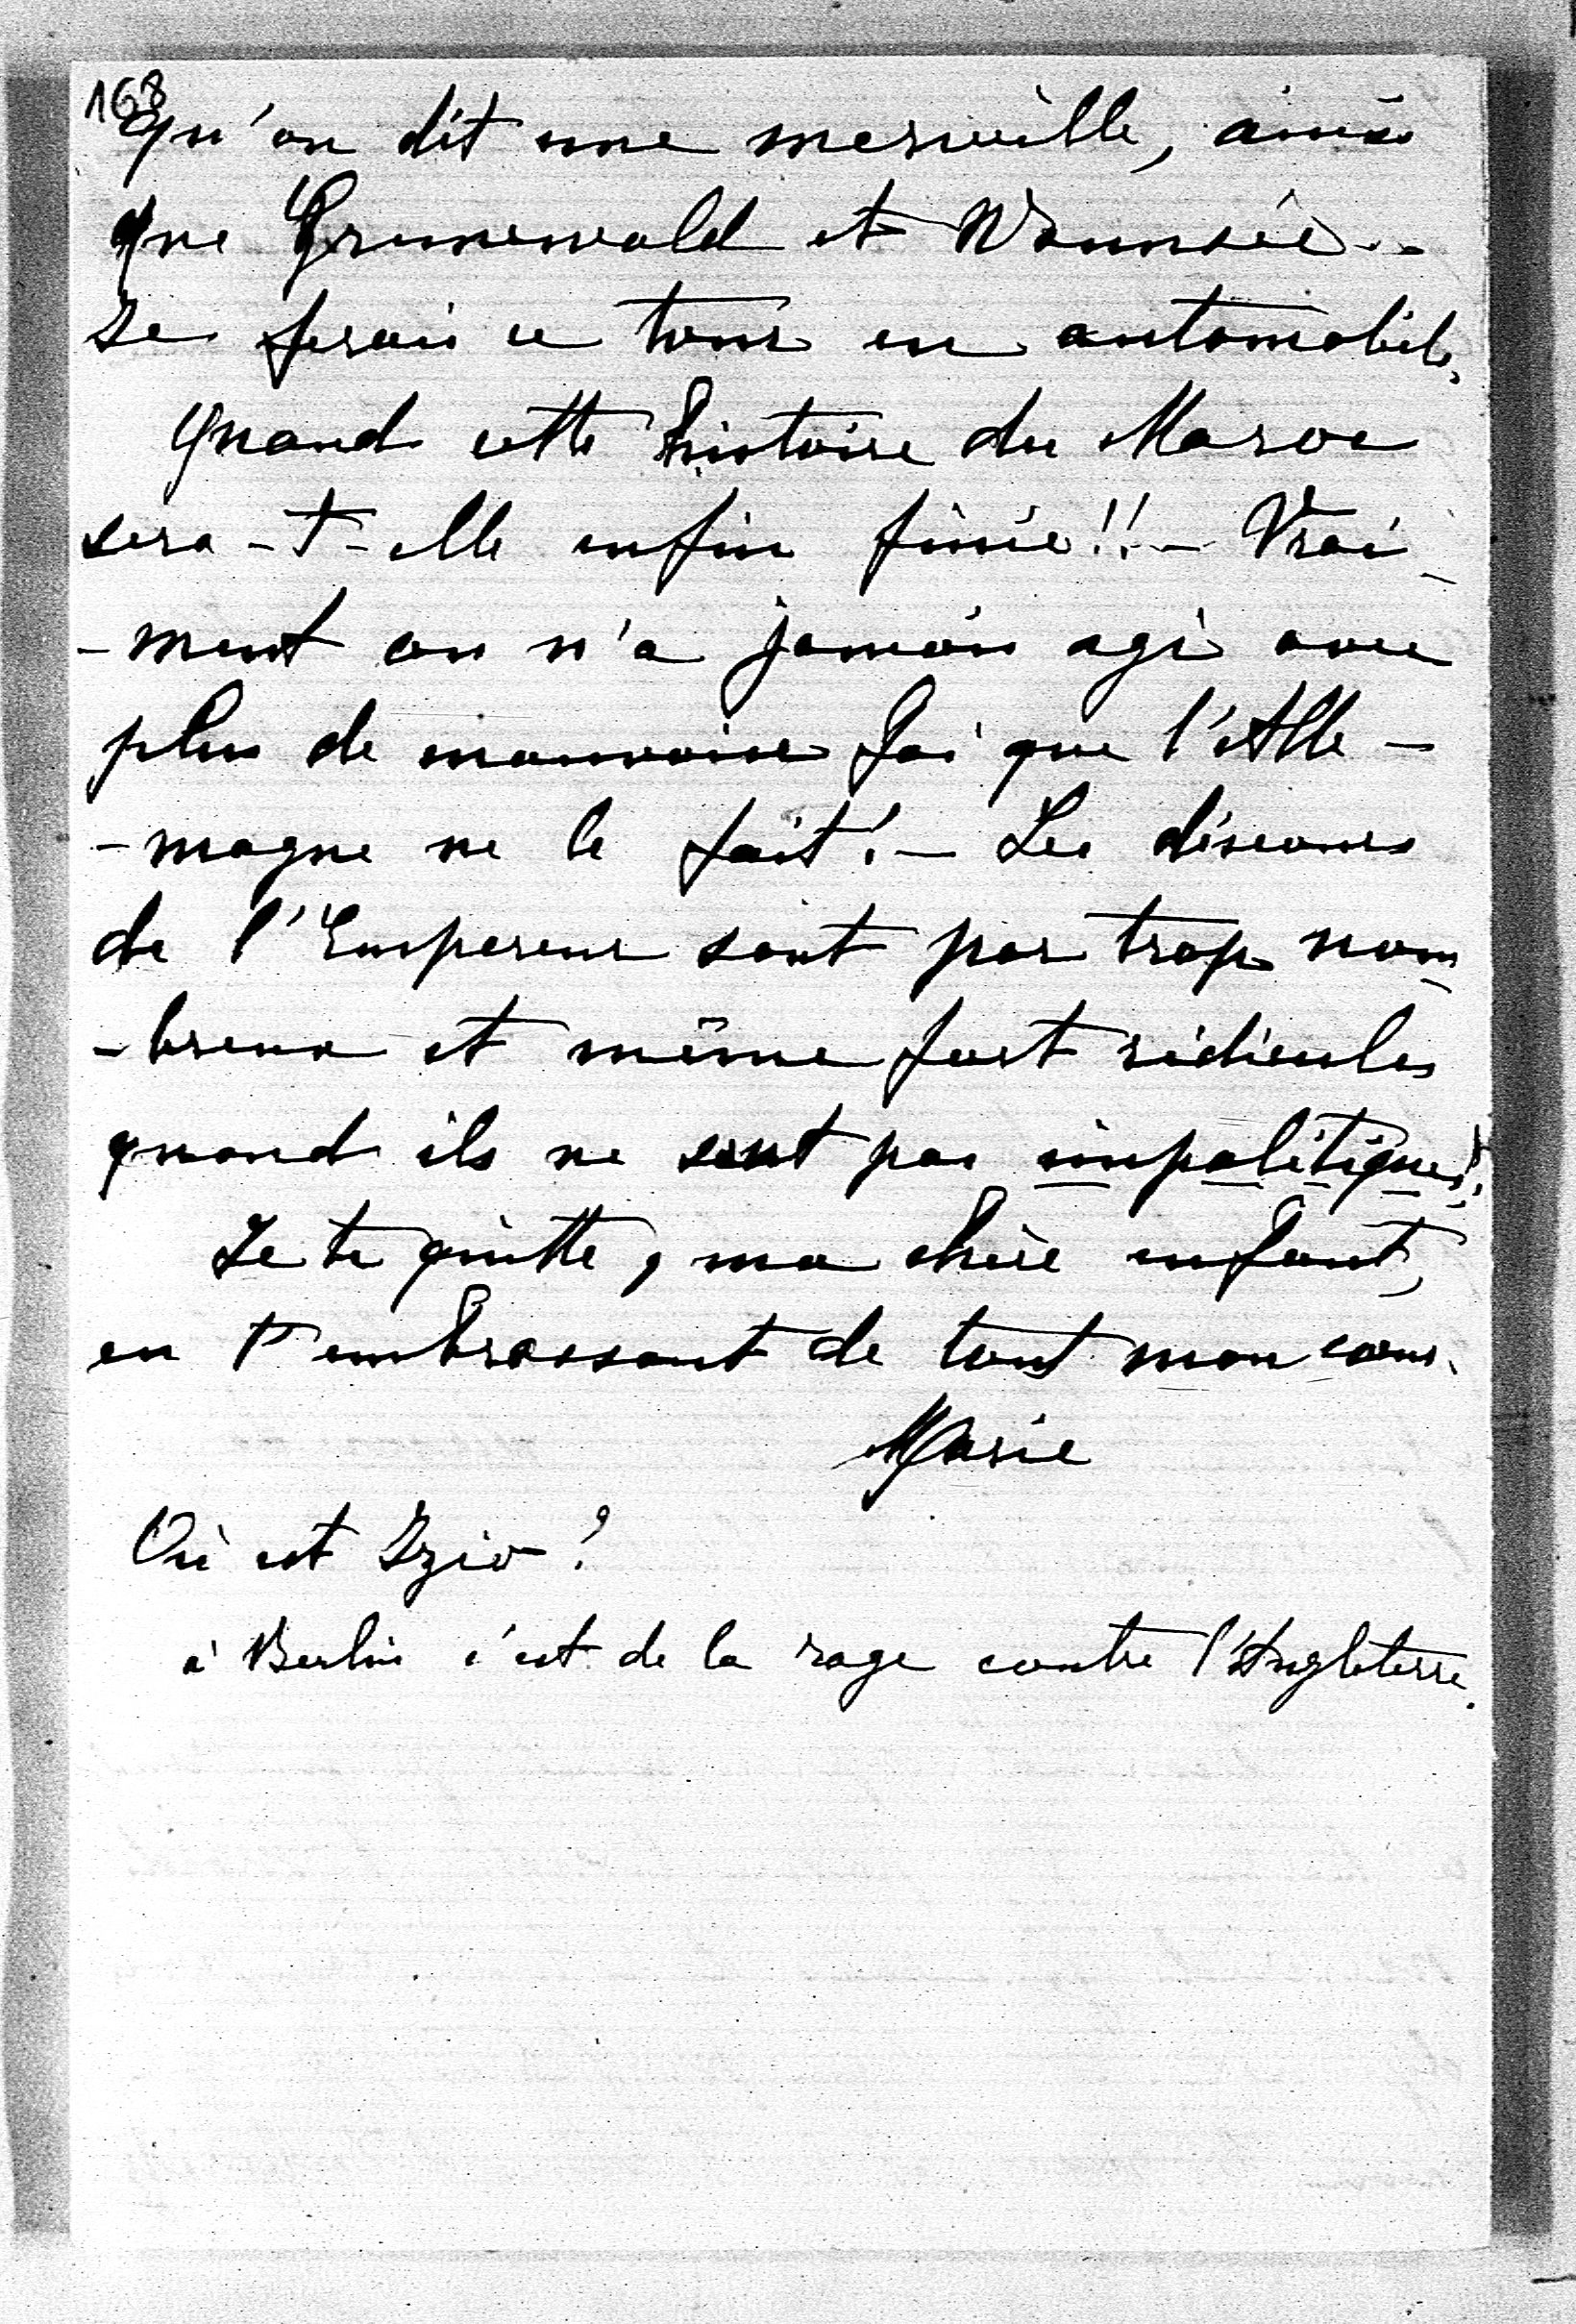 168
qu'on dit une merveille, ainsi
que Grunewald et Wannsée..
Je ferai ce tour en automobile.
Quand cette histoire du Maroc
sera-t-elle enfin finie!! - Vrai-
-ment on n'a jamais agi avec
plus de mauvaise foi que l'Alle-
-magne ne le fait! - Les discours
de l'Empereur sont par trop nom-
-breux et même fort ridicules
quand ils ne sont pas impolitiques!
Je te quitte, ma chère enfant,
en t'embrassant de tout mon cœur.
Marie
Où est Izio?
à Berlin c'est de la rage contre l'Angleterre.